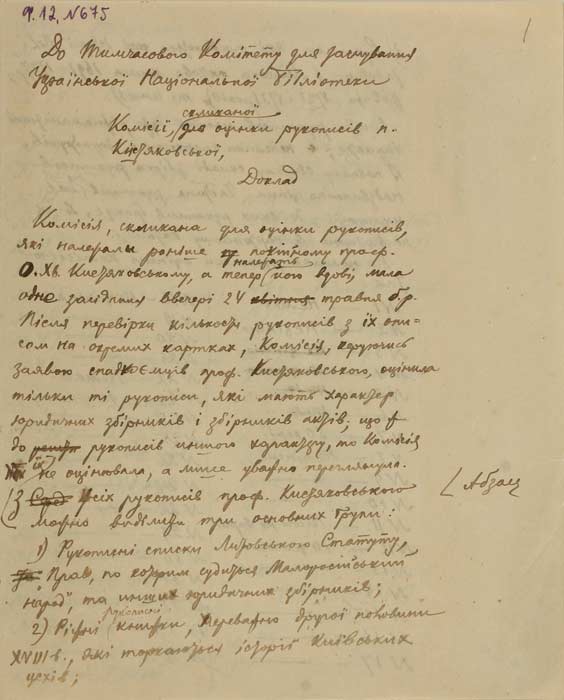 ч. 12, N675
1
До Тимчасового Комітету для заснування
Української Національної Бібліотеки
скликаної
Комісії, для оцінки рукописів п.
Кистяковської,
Доклад
Комісія, скликана для оцінки рукописів,
які належали раніше покійному проф.
належать
О. Хв. Кистяковському, а тепер його вдові, мала
одне засідання ввечері 24 квітня травня б.р.
Після перевірки кількости рукописів з їх опи-
сом на окремих картках, Комісія, керуючись
заявою спадкоємців проф. Кистяковського, оцінила
тільки ті рукописи, які мають характер
юридичних збірників і збірників актів; що
до решти рукописів иншого характеру, то Комісія
їх не оцінювала, а лише уважно переглянула.
(З Усіх рукописів проф. Кистяковського
[ Абзац
можно виділити три основних групи:
1) Рукописні списки Литовського Статуту,
"Прав, по которим судиться Малоросійський
народ", та инших юридичних збірників;
рукописні
2) Ріжні книжки, переважно другої половини
XVIII в., які торкаються історії Київських
цехів;